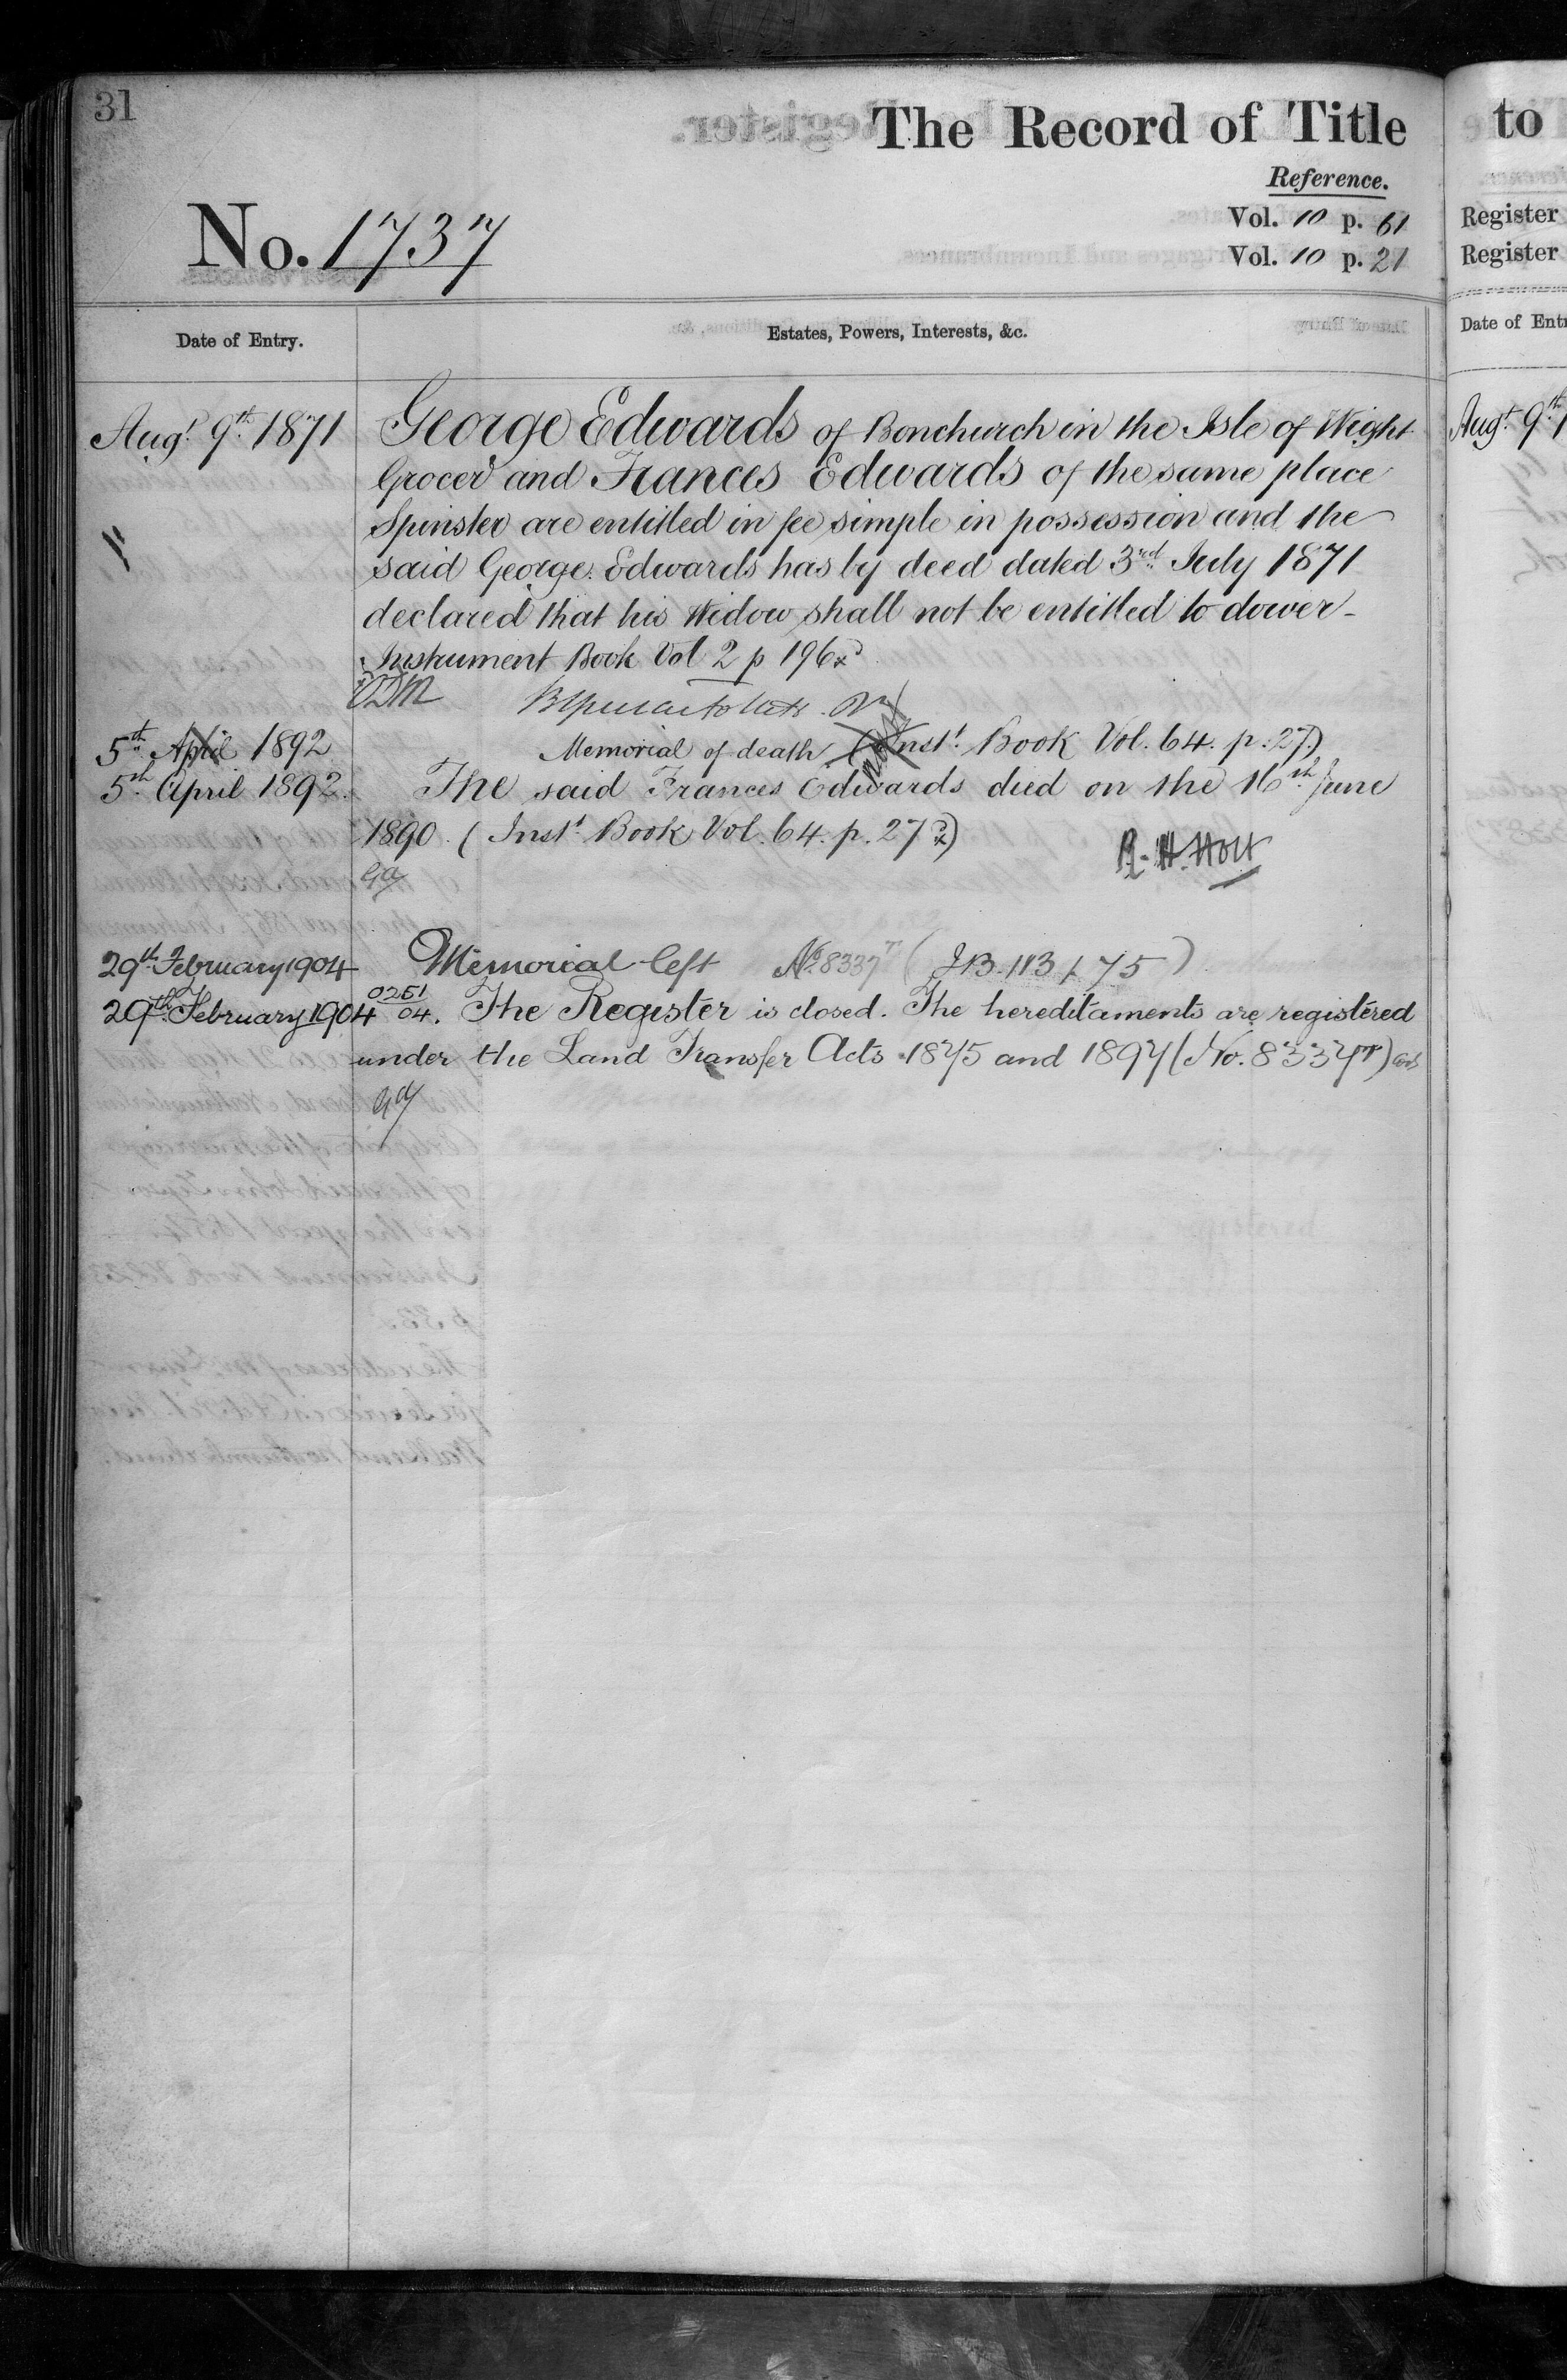 31
The Record of Title
Reference.
No. 1737
Vol. 10 p. 61
Vol. 10 p. 21
Date of Entry.
Estates, Powers, Interests, &c.
Augt. 9th. 1871
George Edwards of Bonchurch in the Isle of Wight
Grocer and Frances Edwards of the same place
Spinster are entitled in fee simple in possession and the
said George Edwards has by deed dated 3rd July 1871
declared that his Widow shall not be entitled to dower-
Instrument Book Vol 2 p 196
5th. April 1892
Memorial of death (Inst. Book Vol. 64. p. 27.)
5th. April 1892.
The said Frances Edwards died on the 16th. June
1890. (Inst. Book Vol. 64. p. 27)
R. H. Holt
29th. February 1904
Memorial left No. 8337 (I.B. 113 / 75)
29th. February 1904
0251
04. The Register is closed. The hereditaments are registered
under the Land Transfer Acts 1875 and 1897 (No. 8337)
to
Register
Register
Date of Ent
Augt. 9th. 1